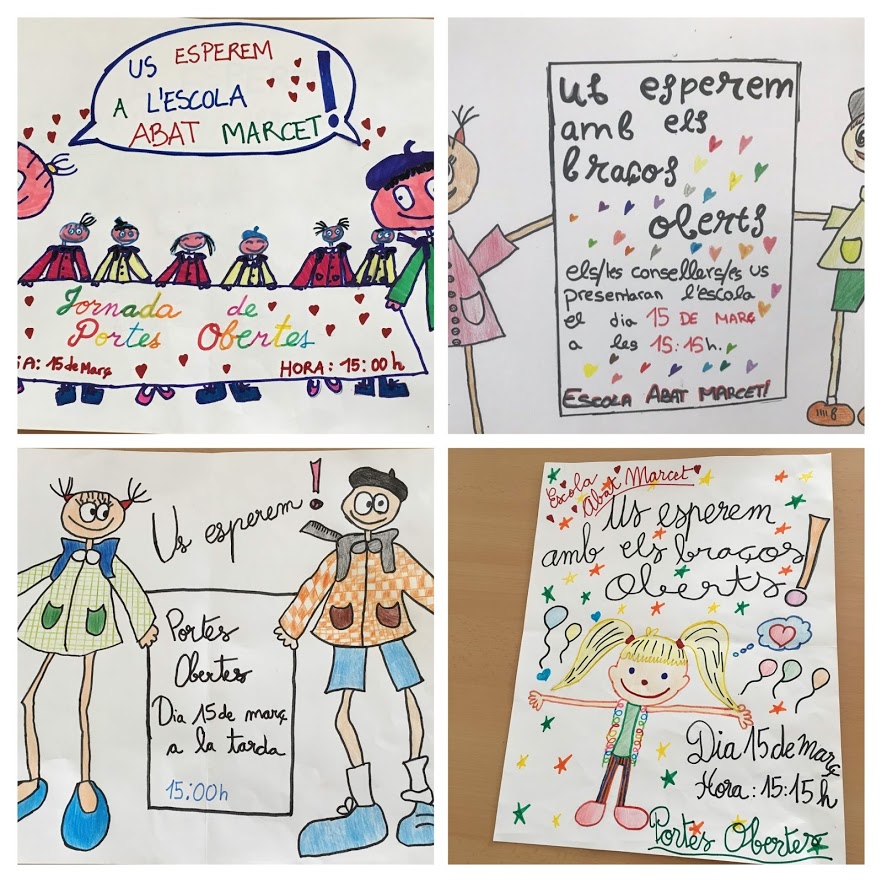 US ESPEREM
A L'ESCOLA
ABAT MARCET!
Jornada de
Portes Obertes
DIA: 15 de Març
HORA: 15:00 h
Us esperem
amb els
braços
oberts
els/les consellers/es us
presentaran l'escola
el dia 15 DE MARÇ
a les 15:15h.
ESCOLA ABAT MARCET!
Us esperem!
Portes
Obertes
Dia 15 de març
a la tarda
15:00h
Escola
Abat Marcet
Us esperem
amb els braços
Oberts!
Dia 15 de Març
Hora: 15:15 h
Portes Obertes